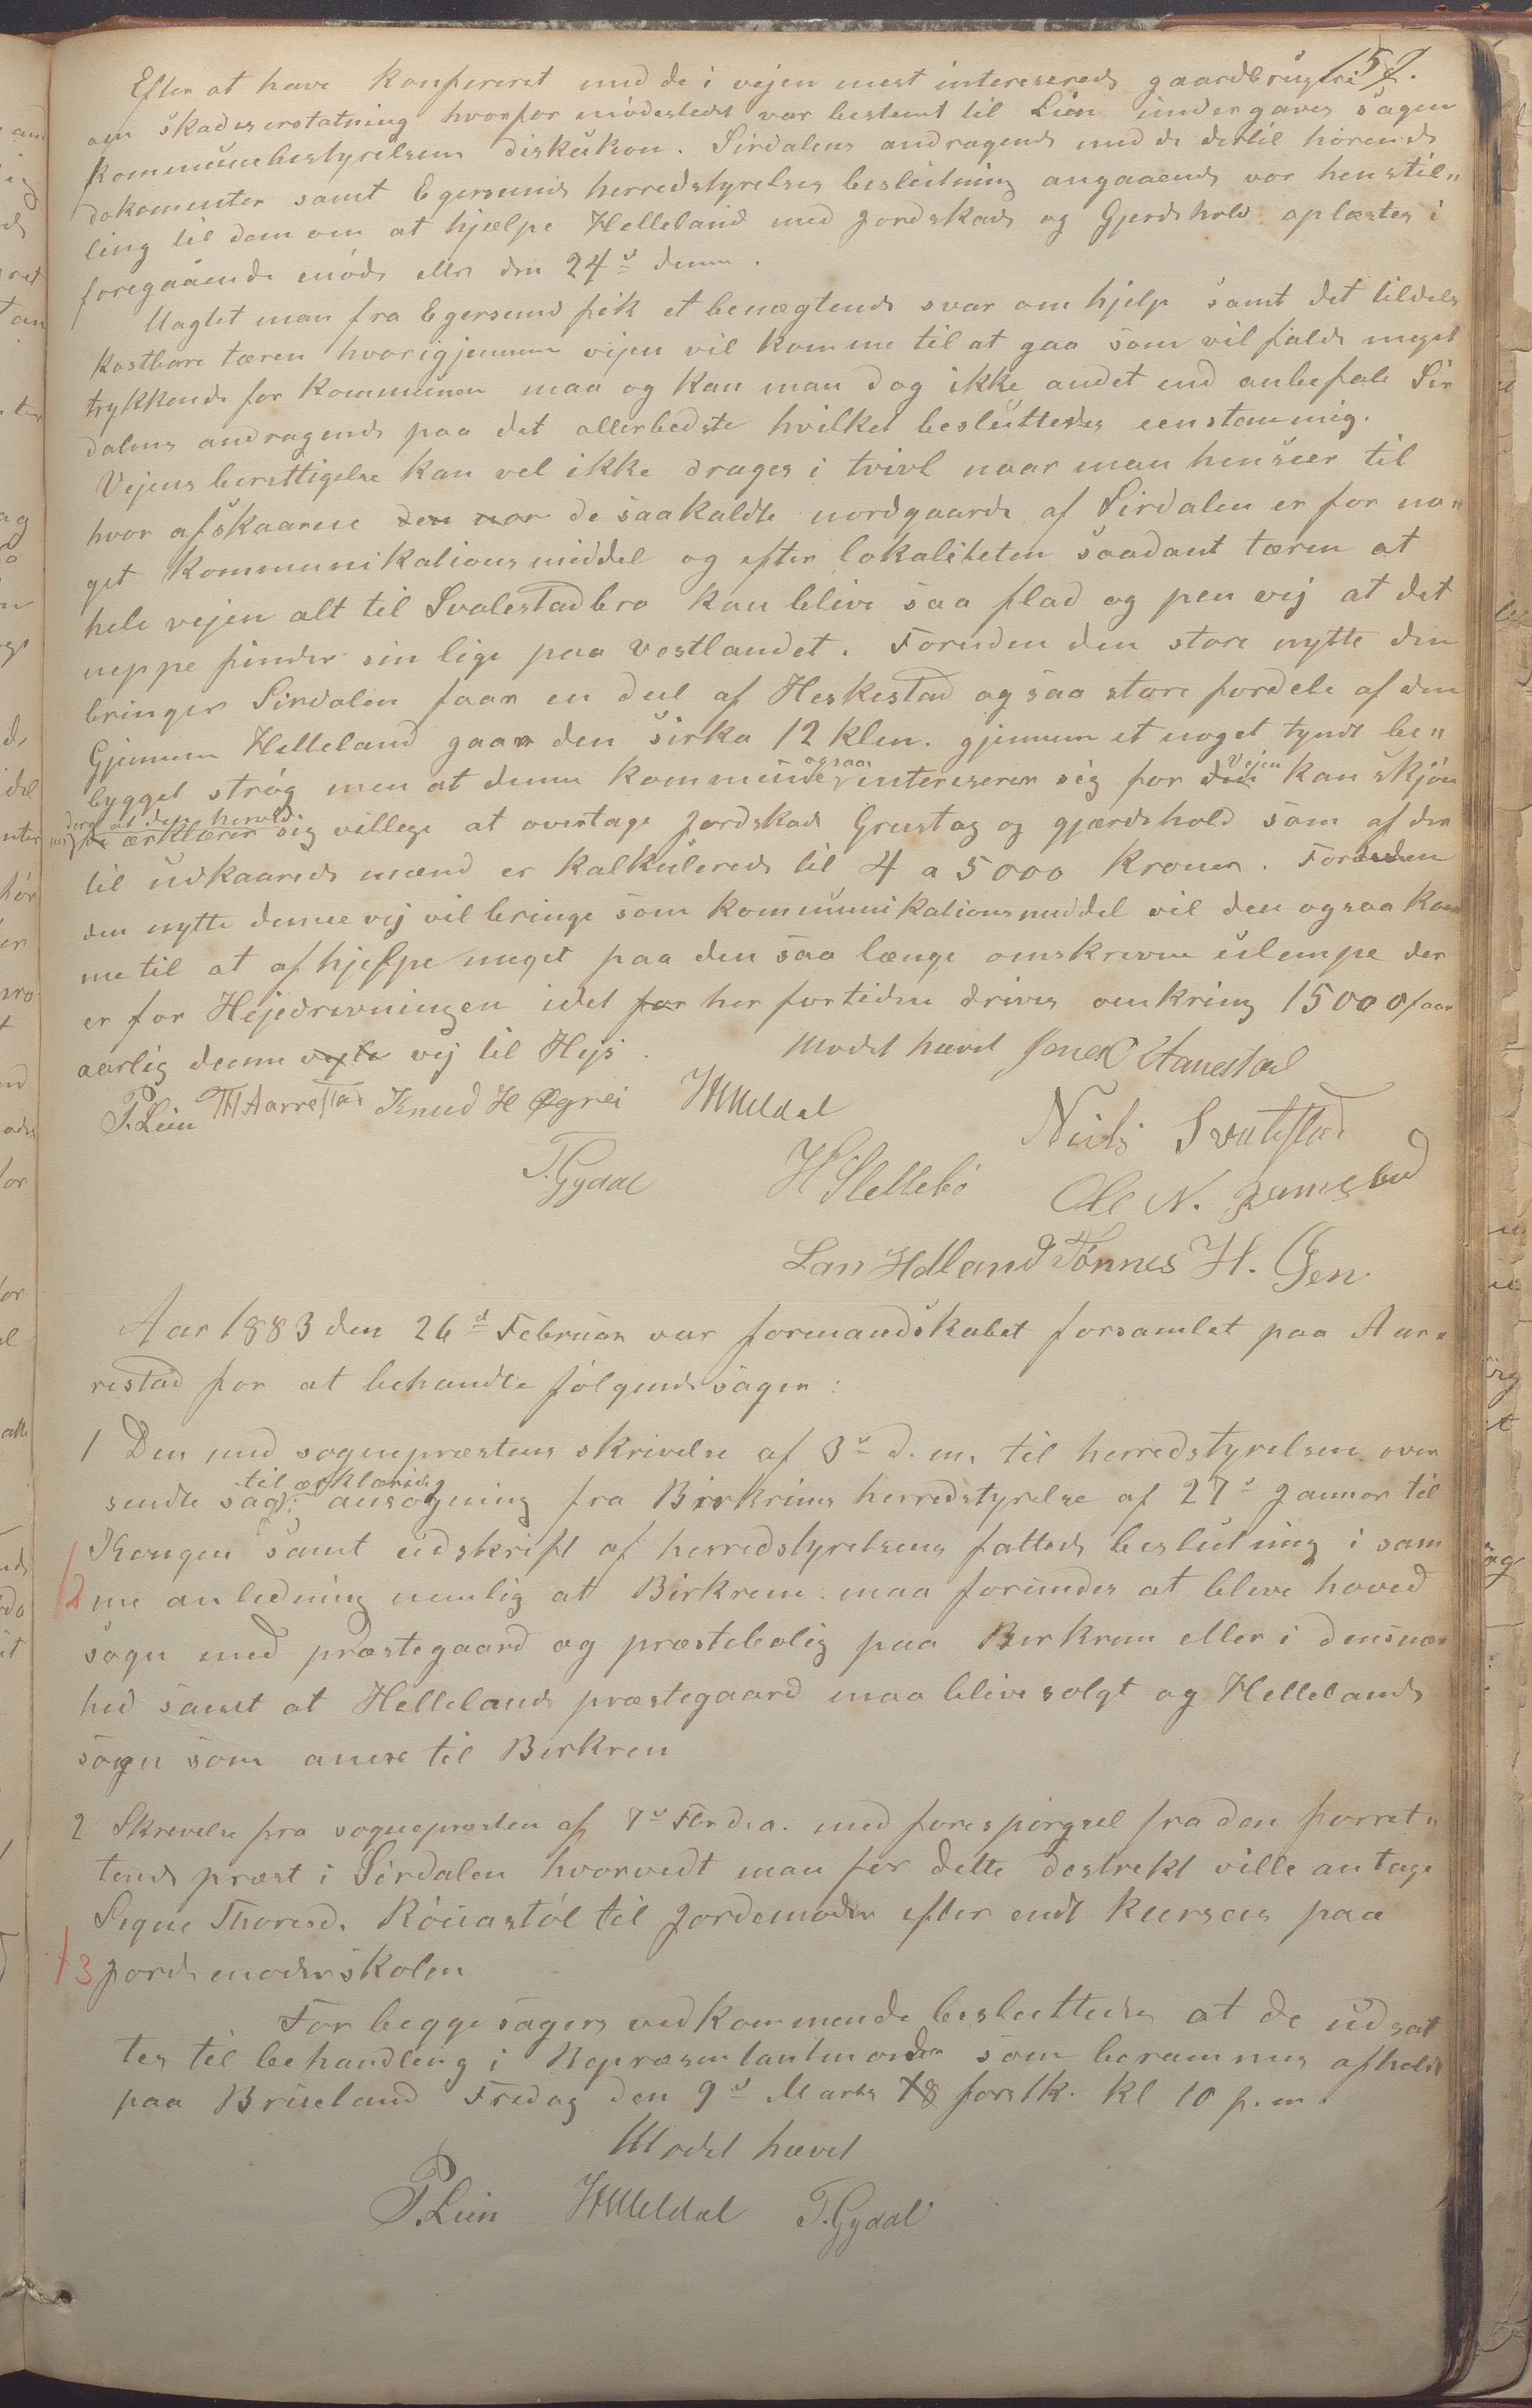 159.
Efter at have Konfereret med de i vejen mest interesserede gaardbrugere
om skadeserstatning hvorfor mödestedet var bestemt til Lien undergaves sagen
kommunebestyrelsens diskusion. Sirdalens andragende med de dertil hörende
dokumenter samt Egersunds herredstyrelses beslutning angaaende vor henstil„
ling til dem om at hjælpe Helleland med Jordskade og Gjerdehold oplæstes i
foregaaende möde eller den 24de denne.
Uagtet man fra Egersund fik et benægtende svar om hjelp samt det tildels
kostbare tæren hvorigjennem vejen vil komme til at gaa som vil falde meget
trykkende for Kommunen maa og kan man dog ikke andet end anbefale Sir
dalens andragende paa det allerbedste hvilket besluttedes eenstemmig.
Vejens berettigelse kan vel ikke drages i tvivl naar man henseer til
hvor afskaarene den nor de saakaldte nordgaarde af Sirdalen er for no„
get kommunikationsmiddel og efter lokaliteten saadant tæren at
hele vejen alt til Svalestadbro kan blive saa flad og pen vej at det
neppe finder sin lige paa Vestlandet. Foruden den store nytte den
bringer Sirdalen faar en deel af Heskestad ogsaa store fordele af den
Gjennem Helleland gaar den sirka 12 klm. gjennem et noget tyndt be„
bygget strög men at denne kommune ogsaa intereserer sig for den Vejen kan skjön
nes deraf at dens herred de ærklærer sig villege at overtage Jordskade Grustag og gjærdehold som af der
til udkaarede mænd er kalkulerede til 4 a 5000 Kroner. Foruden
den nytte denne vej vil bringe som kommunikationsmiddel vil den ogsaa kom
me til at afhjelpe meget paa den saa længe omskrevne ulempe der
er for Hejedrevningen idet for her fortiden drives omkring 15000 faar
aarlig denne vej til Hejs.
Modet hævet
P. Lien TH Aarrestad Knud H Øgrei HMeldal
Niels Svalestad
T. Gydal H Slettebö Ole N. Ramsland
Lars Helland Tönnes H. Gjen
Aar 1883 den 26de Februar var formandskabet forsamlet paa Aar„
restad for at behandle fölgende sager:
1 Den med sognepræstens skrivelse af 3de d.m. til herredstyrelsen over
sendte sag: til ærklæring ansögning fra Birkrims herredstyrelse af 27de Januar til
Kongen samt udskrift af herredstyrelsens fattede beslutning i sam
12 me anledning nemlig at Birkrem maa forundes at bleve hoved
sogn med præstegaard og præstebolig paa Birkrem eller i densnær
hed samt at Hellelands præstegaard maa blive solgt og Hellelands
sogn som anexe til Birkrem
2 Skrevelse fra sognepresten af 7de F.br d.a. med forespörgsel fra den forret„
tende præst i Sirdalen hvorvedt man for dette destrekt ville antage
Signe Thoresd. Röiastöl til Jordemoder efter endt kursus paa
13 Jordemoderskolen
For begge sagers vedkommende besluttedes at de udsat
tes til behandling i Repræsentantmöde som berammes afholdt
paa Brueland Fredag den 9de Marts 18 forstk. kl 10 f.m.
Modet hævet
P. Lien HMeldal T. Gydal